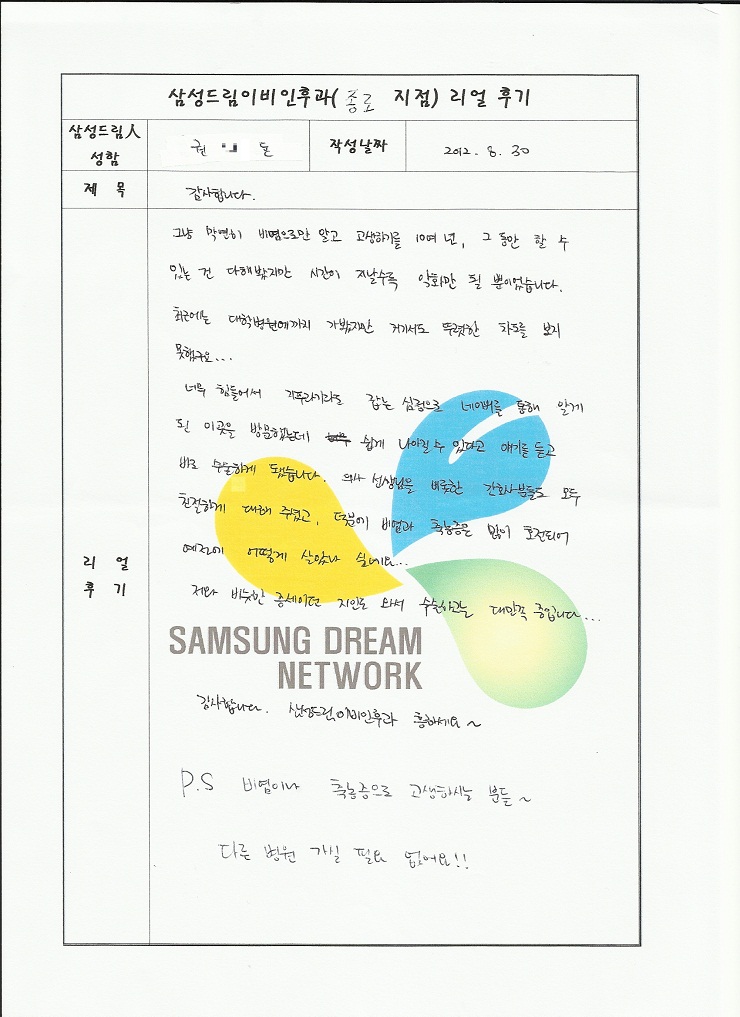 삼성드림이비인후과( 종로 지점) 리얼 후기
삼성드림人
성함
권 돈
작성날짜
2012. 8. 30
제 목
감사합니다.
그냥 막연히 비염으로만 알고 고생하기를 10여 년, 그 동안 할 수
있는 건 다해봤지만 시간이 지날수록 악화만 될 뿐이었습니다.
최근에는 대학병원에까지 가봤지만 거기서도 뚜렷한 차도를 보지
못했구요...
너무 힘들어서 지푸라기라도 잡는 심정으로 네이버를 통해 알게
된 이곳을 방문했는데 쉽게 나아질 수 있다고 얘기를 듣고
바로 수술하게 됐습니다. 의사 선생님을 비롯한 간호사분들도 모두
친절하게 대해 주셨고, 덕분에 비염과 축농증은 많이 호전되어
예전에 어떻게 살았나 싶네요...
저와 비슷한 증세이던 지인도 와서 수술하고는 대만족 중입니다...
리 얼
후 기
SAMSUNG DREAM
NETWORK
감사합니다. 삼성드림이비인후과 흥하세요~
P.S 비염이나 축농증으로 고생하시는 분들~
다른 병원 가실 필요 없어요!!